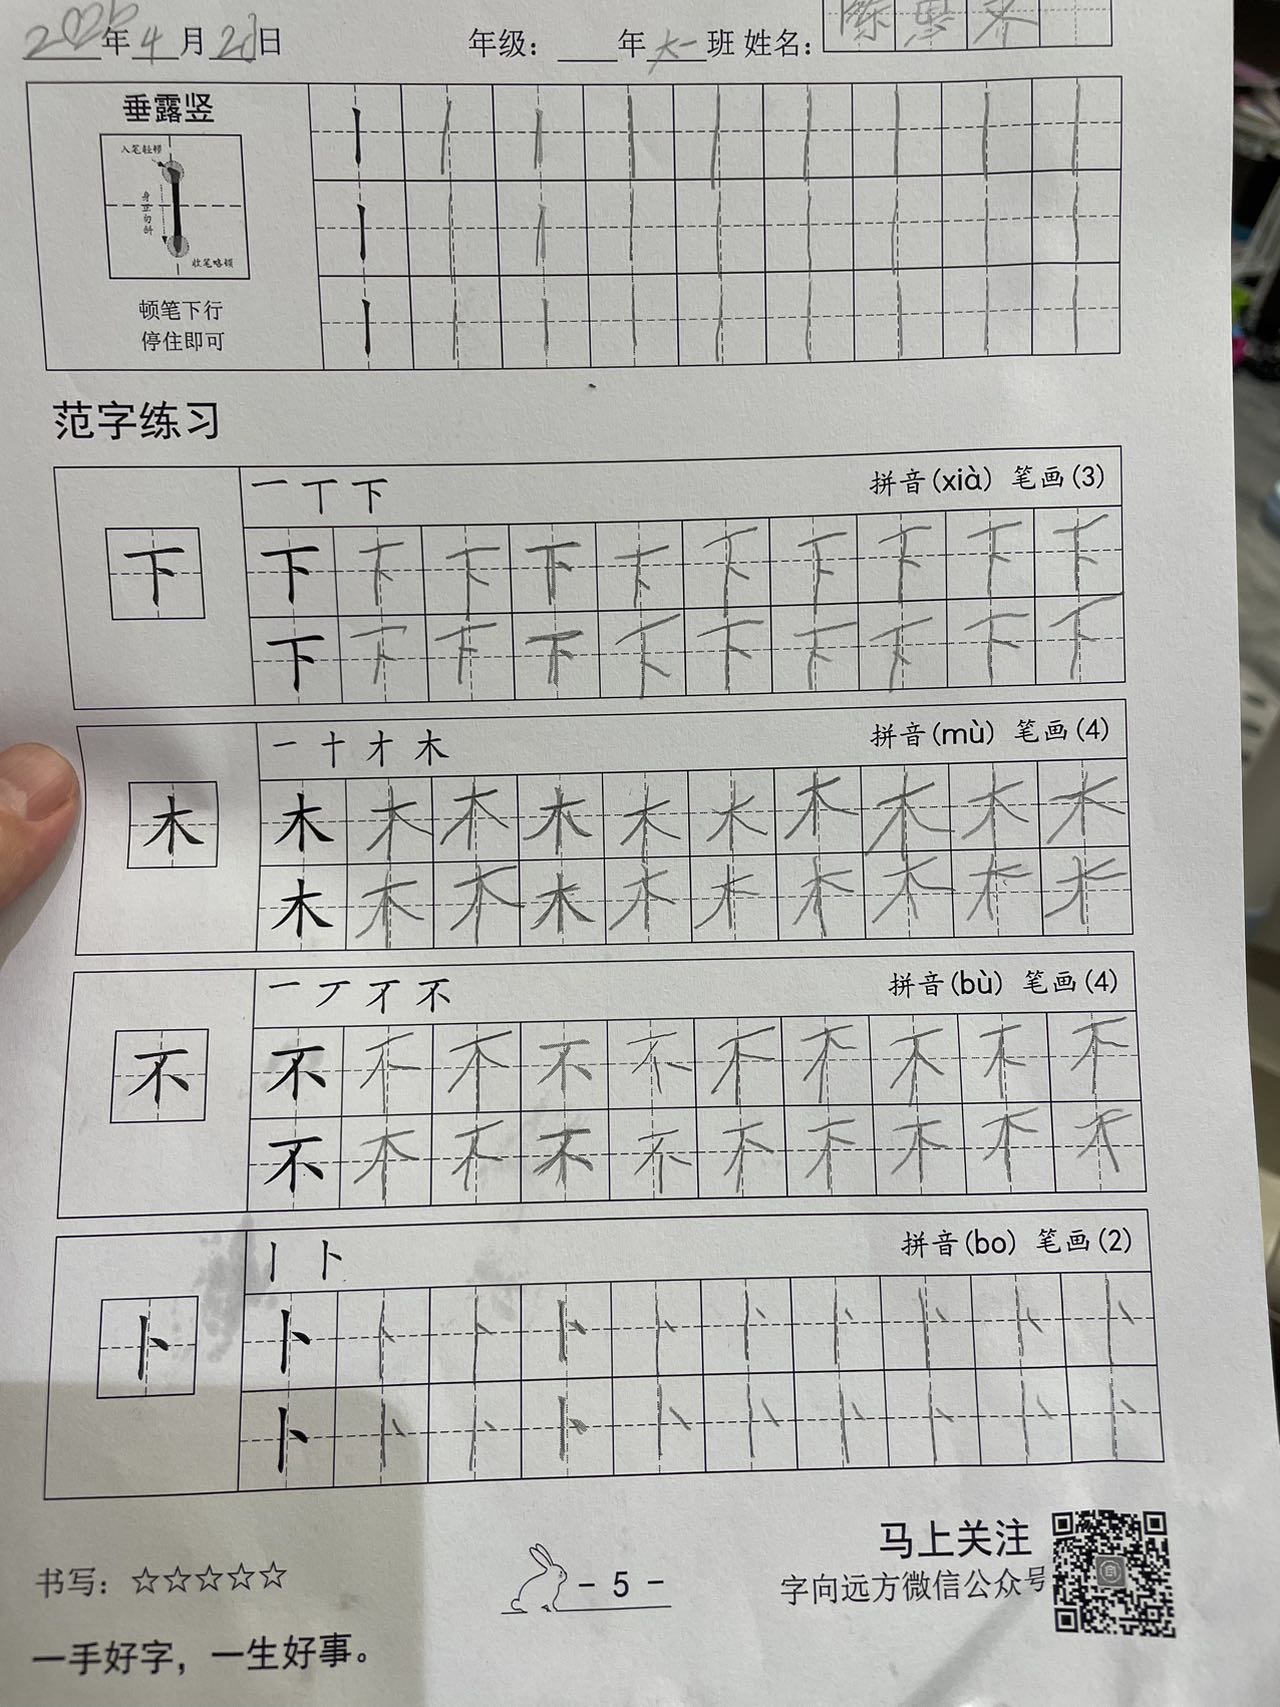 年4月20日 年级：____年大一班 姓名：陈思齐
垂露竖
入笔轻顿
收笔略顿
顿笔下行
停住即可
丨 丨 丨 丨 丨 丨 丨 丨 丨
丨 丨 丨 丨 丨 丨 丨 丨 丨
丨 丨 丨 丨 丨 丨 丨 丨 丨
范字练习
一 丅 下 拼音(xià) 笔画(3)
下
下 下 下 下 下 下 下 下 下 下
下 下 下 下 下 下 下 下 下 下
一 十 才 木 拼音(mù) 笔画(4)
木
木 木 木 木 木 木 木 木 木 木
木 木 木 木 木 木 木 木 木 木
一 丆 不 拼音(bù) 笔画(4)
不
不 不 不 不 不 不 不 不 不 不
不 不 不 不 不 不 不 不 不 不
丨 卜 拼音(bo) 笔画(2)
卜
卜 卜 卜 卜 卜 卜 卜 卜 卜 卜
卜 卜 卜 卜 卜 卜 卜 卜 卜 卜
马上关注
书写：☆☆☆☆☆ - 5 - 字向远方微信公众号
一手好字，一生好事。